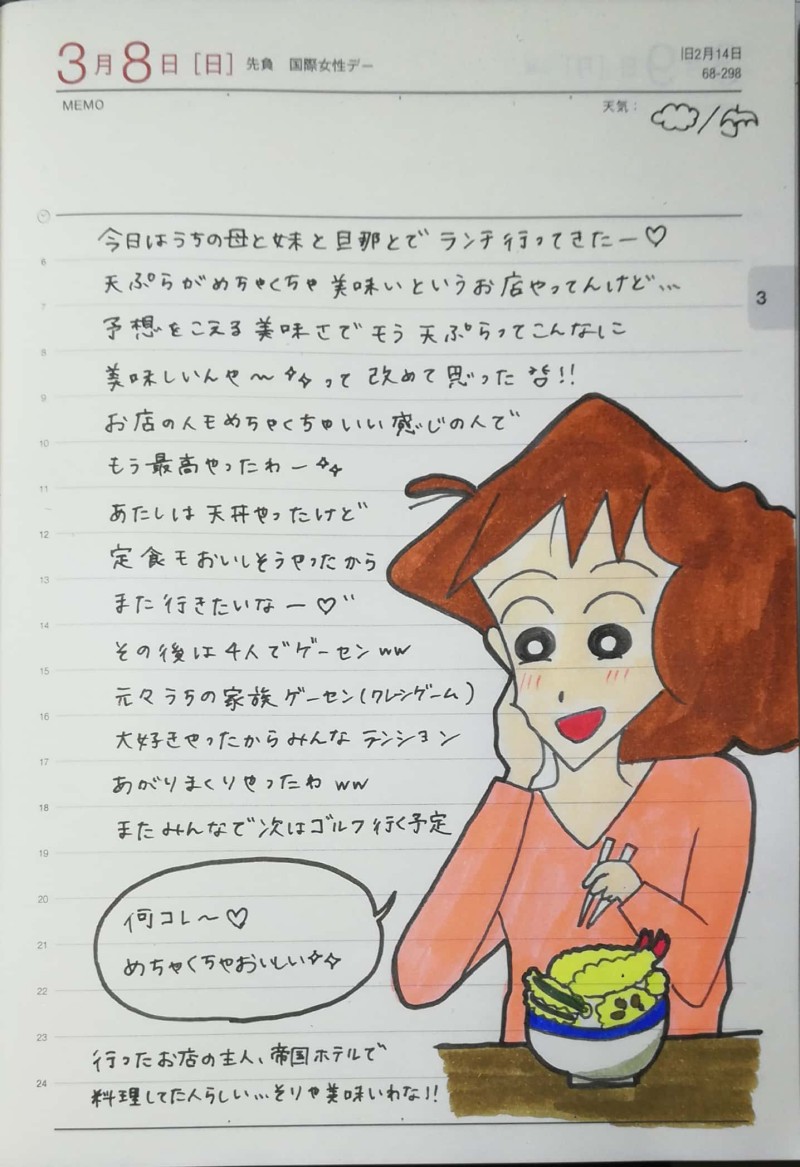 3月8日[日] 先負 国際女性デー
旧2月14日
68-298
MEMO
天気：
/
今日はうちの母と妹と旦那とでランチ行ってきたー♡
天ぷらがめちゃくちゃ美味いというお店やってんけど…
予想をこえる美味さでもう天ぷらってこんなに
美味しいんや〜✧✧って改めて思った!!
お店の人もめちゃくちゃいい感じの人で
もう最高やったわー✧✧
あたしは天丼やったけど
定食もおいしそうやったから
また行きたいなー♡"
その後は4人でゲーセンww
元々うちの家族ゲーセン(クレンゲーム)
大好きやったからみんなテンション
あがりまくりやったわww
またみんなで次はゴルフ行く予定
何コレ〜♡
めちゃくちゃおいしい✧✧
行ったお店の主人、帝国ホテルで
料理してた人らしい…そりゃ美味いわな!!
3
6
7
8
9
10
11
12
13
14
15
16
17
18
19
20
21
22
23
24